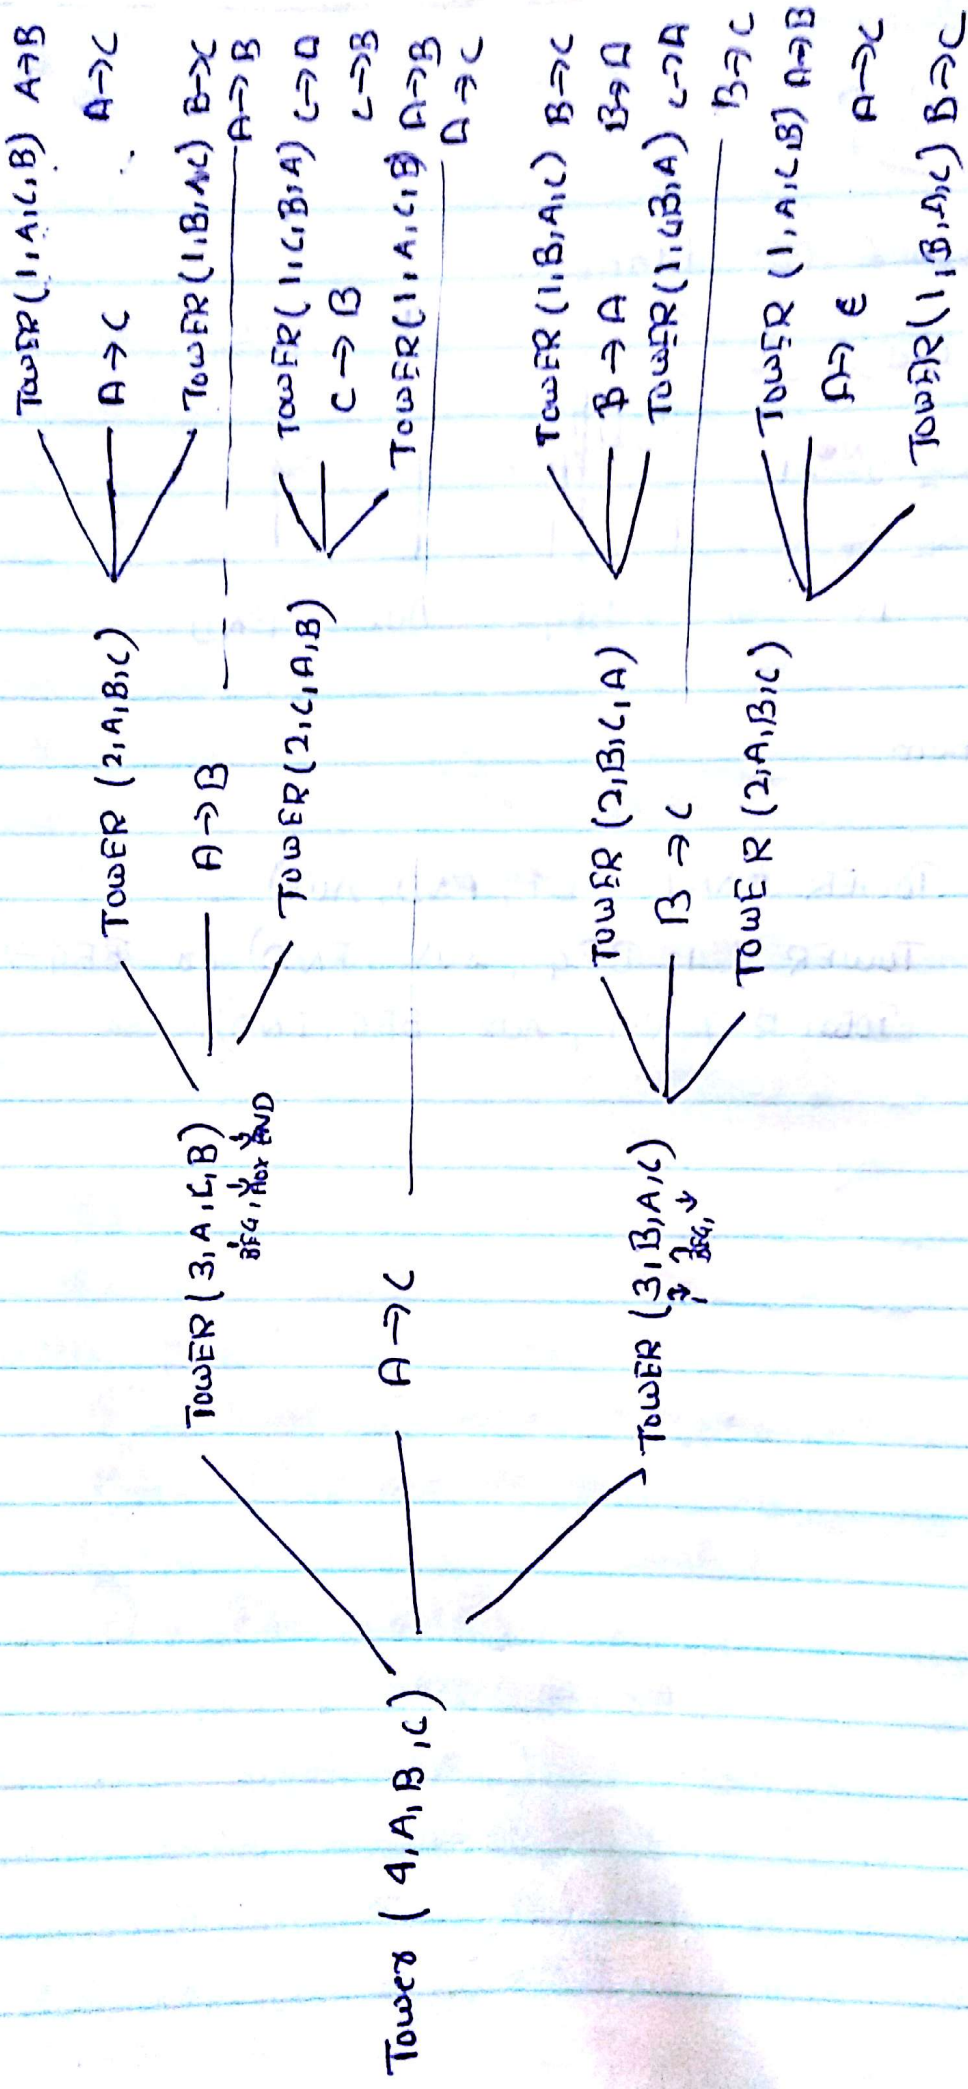 Tower (4,A,B,C)
TOWER (3,A,C,B)
BEG, AUX END
A→C
TOWER (3,B,A,C)
BEG,
TOWER (2,A,B,C)
A→B
TOWER (2,C,A,B)
TOWER (2,B,C,A)
B→C
TOWER (2,A,B,C)
TOWER (1,A,C,B) A→B
A→C A→C
TOWER (1,B,A,C) B→C
A→B
TOWER (1,C,B,A) C→A
C→B C→B
TOWER (1,A,C,B) A→B
A→C
TOWER (1,B,A,C) B→C
B→A B→A
TOWER (1,C,B,A) C→A
B→C
TOWER (1,A,C,B) A→B
A→C A→C
TOWER (1,B,A,C) B→C